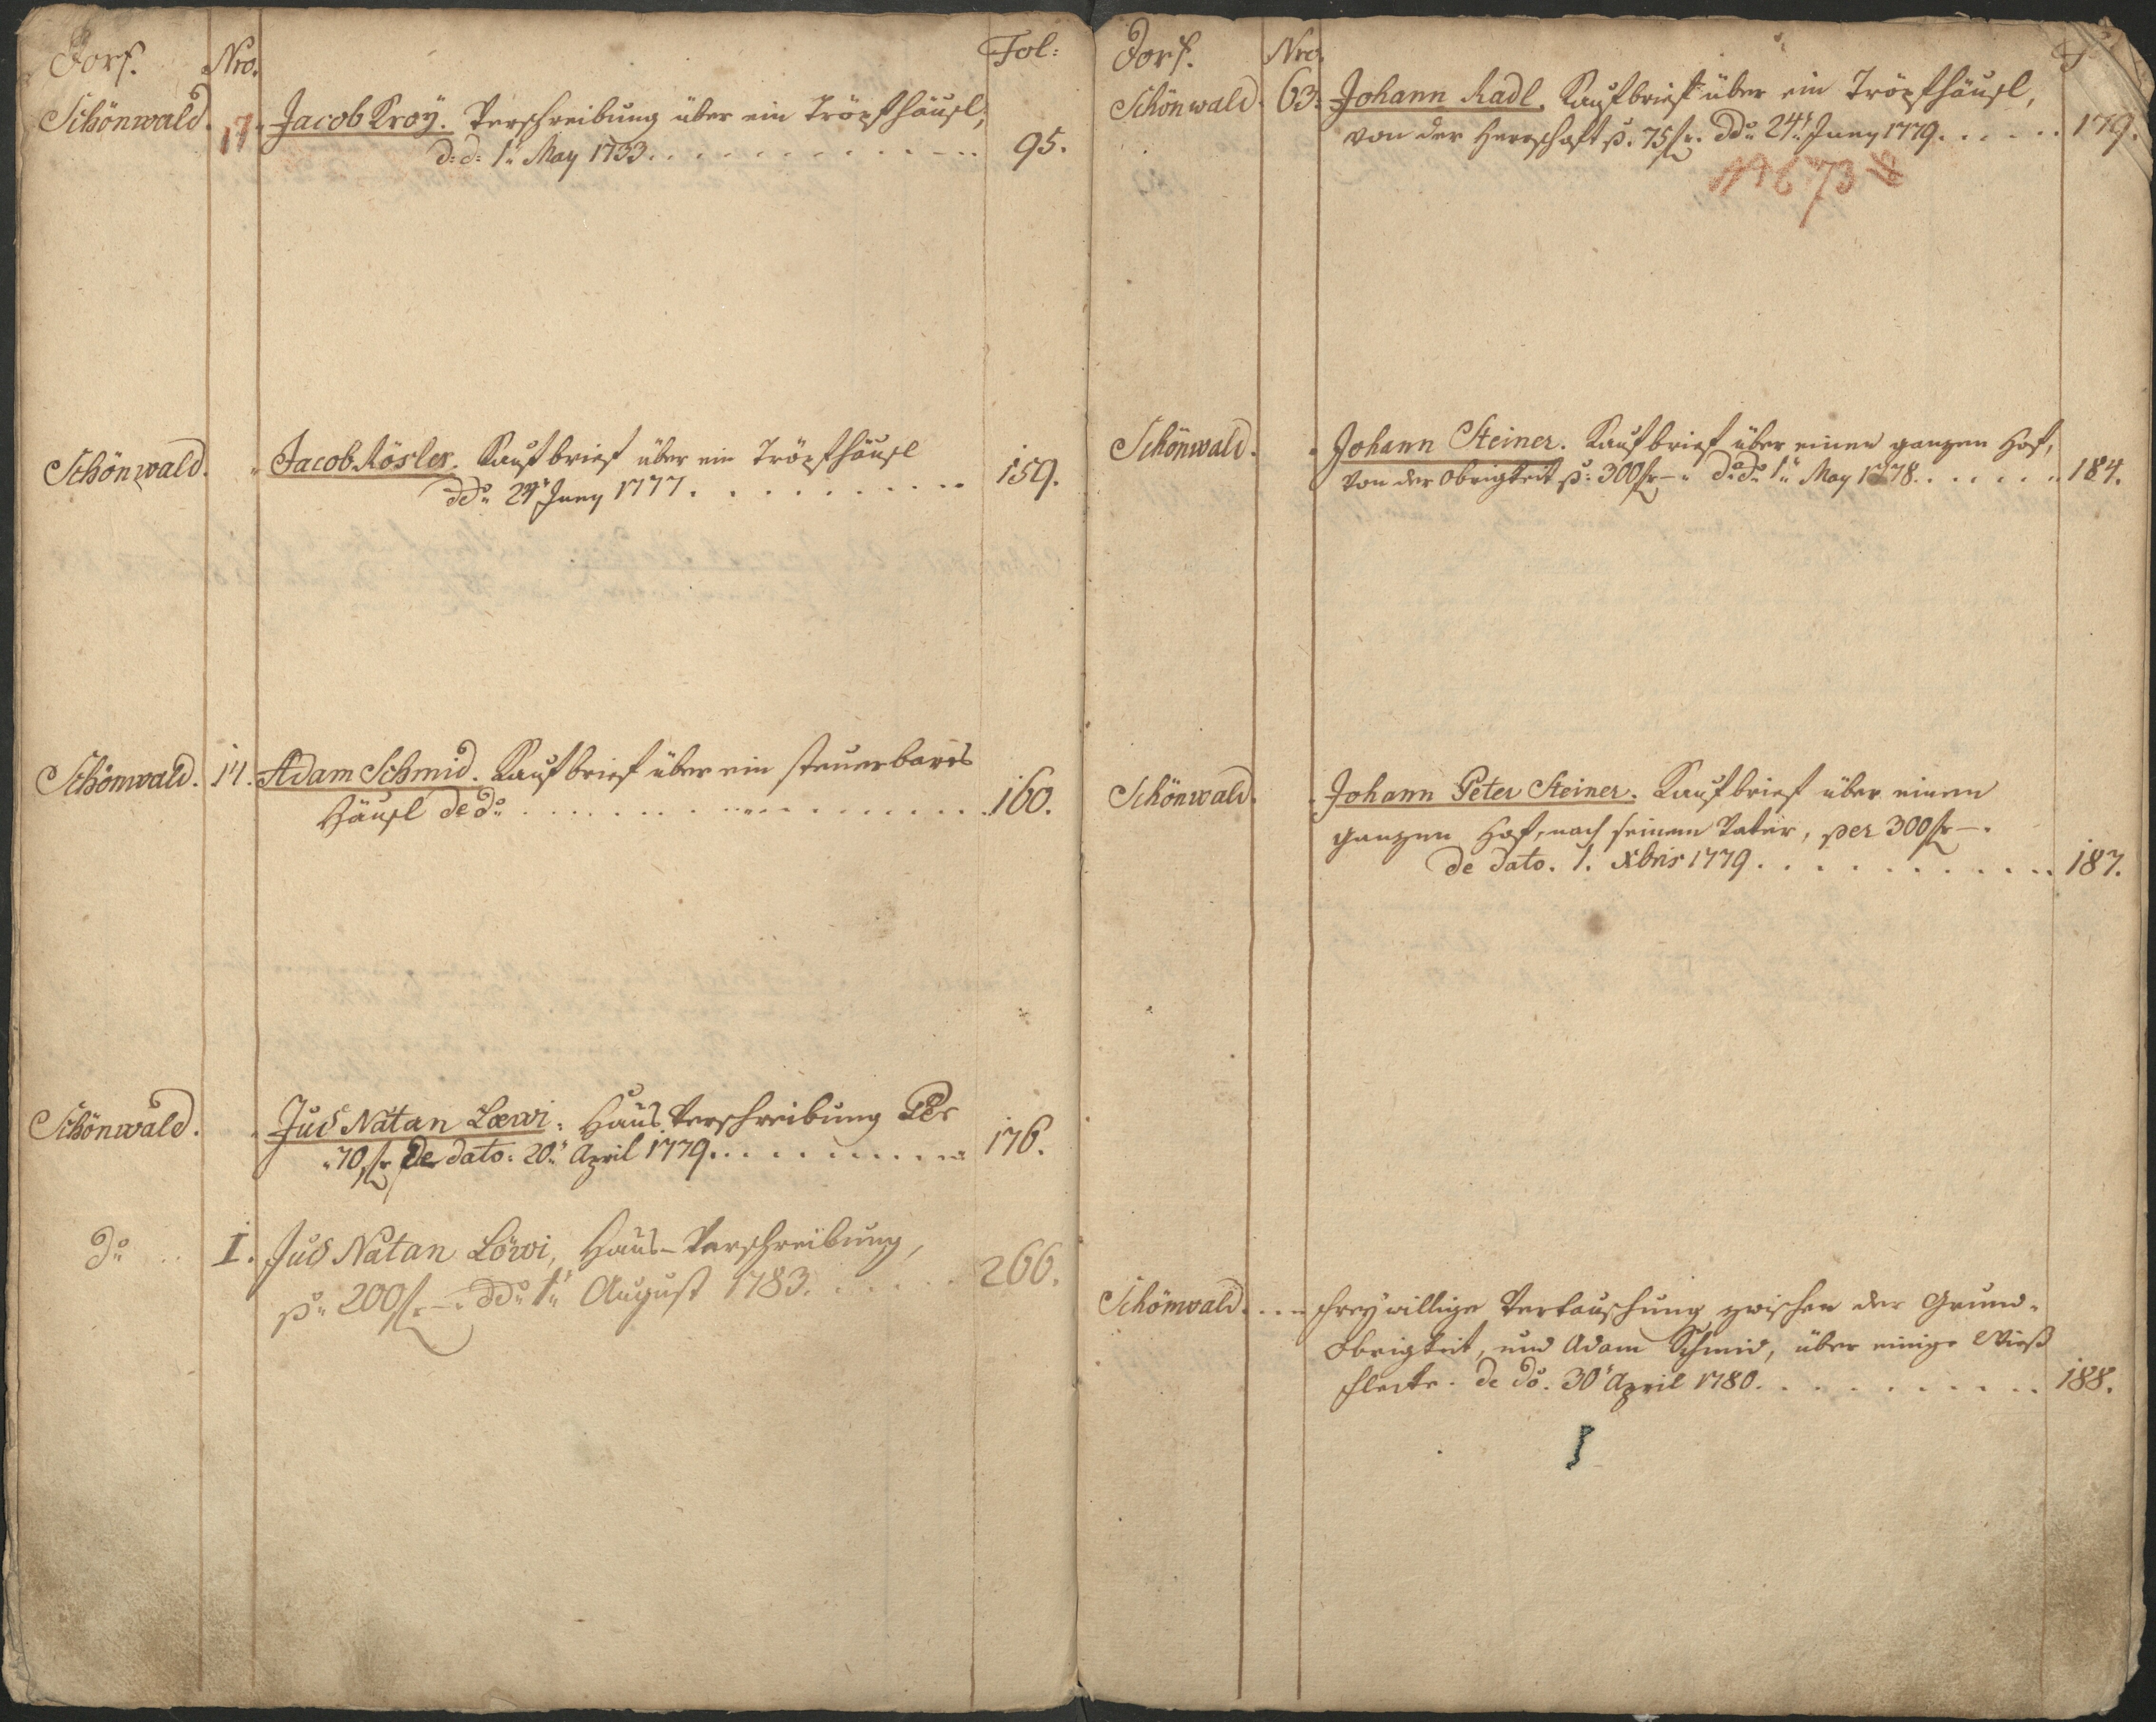 Dorf. Nro. Fol:
Schönwald. 17. Jacob Kroÿ. Verschreibung über ein Tröpfhäußl,
d: d: 1.ᵗ May 1733. 95.
Schönwald. Jacob Rösler. Kaufbrief über ein Tröpfhäußl
ddo 24ᵗ Juny 1777. 159.
Schönwald. 14. Adam Schmid. Kaufbrief über ein steuerbares
Häußl de do 160.
Schönwald. Jud Natan Lœwi. Haus Verschreibung Per
70 fr. De dato: 20.ᵗ April 1779. 176.
do I. Jud Natan Löwi, Haus-Verschreibung,
pr 200 fr. ddo 1.ᵗ August 1783. 266.
Dorf. Nro.
Schönwald. 63. Johann Radl. Kaufbrief über ein Tröpfhäußl,
von der Herrschaft p. 75 fr. ddo 24.ᵗ Juny 1779. 179.
673
Schönwald. Johann Steiner. Kaufbrief über einen ganzen Hof,
von der Obrigkeit p: 300 fr. do do 1.ᵗ May 1778. 184.
Schönwald. Johann Peter Steiner. Kaufbrief über einen
ganzen Hof, nach seinem Vater, per 300 fr.
de dato. 1. Xbris 1779. 187.
Schönwald. freywillige Vertauschung zwischen der Grund-
Obrigkeit, und Adam Schmid, über einige Wieß
flecke. de do. 30ᵗ April 1780. 188.